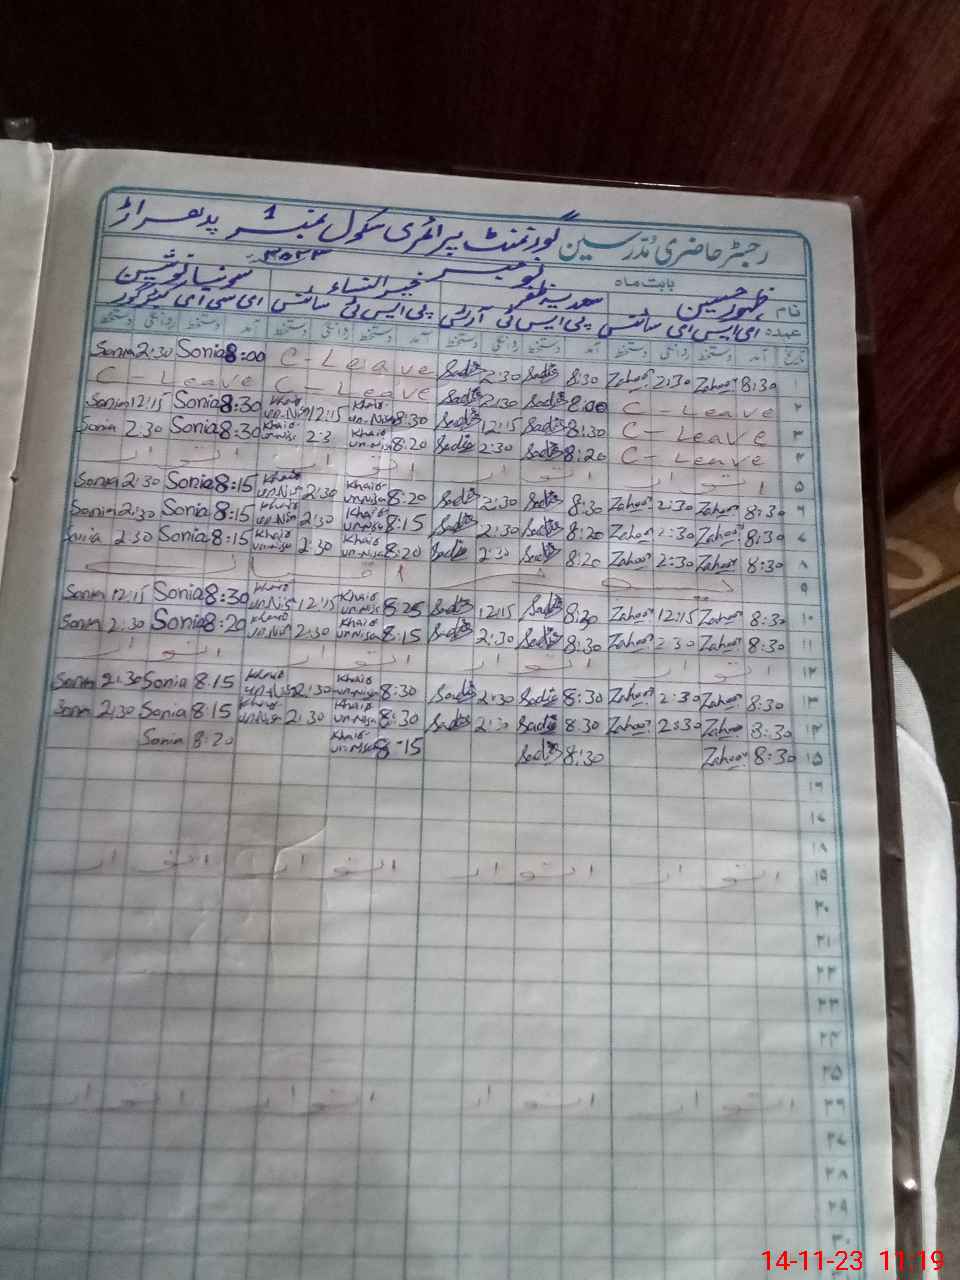 رجسٹر حاضری مُدرسین گورنمنٹ پرائمری سکول نمبر 1 پدھراڑ
بابت ماہ نومبر ۲۰۲۳
نام ظہور حسین سعدیہ ظفر خیر النساء سونیا نوشین
عہدہ ای ایس ای سائنس پی ایس ٹی آرٹس پی ایس ٹی سائنس ای سی ای کیئر گور
تاریخ آمد دستخط روانگی دستخط آمد دستخط روانگی دستخط آمد دستخط روانگی دستخط آمد دستخط روانگی دستخط
۱ 8:30 Zahoor 2:30 Zahoor 8:30 Sadia 2:30 Sadia C - Leave 8:00 Sonia 2:30 Sonia
۲ C - Leave 8:00 Sadia 2:30 Sadia C - Leave C - Leave
۳ C - Leave 8:30 Sadia 12:15 Sadia 8:30 Khair un-Nisa 12:15 Khair un-Nisa 8:30 Sonia 12:15 Sonia
۴ C - Leave 8:20 Sadia 2:30 Sadia 8:20 Khair un-Nisa 2:3 Khair un-Nisa 8:30 Sonia 2:30 Sonia
۵ اتوار اتوار اتوار اتوار
۶ 8:30 Zahoor 2:30 Zahoor 8:30 Sadia 2:30 Sadia 8:20 Khair un-Nisa 2:30 Khair un-Nisa 8:15 Sonia 2:30 Sonia
۷ 8:30 Zahoor 2:30 Zahoor 8:20 Sadia 2:30 Sadia 8:15 Khair un-Nisa 2:30 Khair un-Nisa 8:15 Sonia 2:30 Sonia
۸ 8:30 Zahoor 2:30 Zahoor 8:20 Sadia 2:30 Sadia 8:20 Khair un-Nisa 2:30 Khair un-Nisa 8:15 Sonia 2:30 Sonia
۹
۱۰ 8:30 Zahoor 12:15 Zahoor 8:20 Sadia 12:15 Sadia 8:25 Khair un-Nisa 12:15 Khair un-Nisa 8:30 Sonia 12:15 Sonia
۱۱ 8:30 Zahoor 2:30 Zahoor 8:30 Sadia 2:30 Sadia 8:15 Khair un-Nisa 2:30 Khair un-Nisa 8:20 Sonia 2:30 Sonia
۱۲ اتوار اتوار اتوار اتوار
۱۳ 8:30 Zahoor 2:30 Zahoor 8:30 Sadia 2:30 Sadia 8:30 Khair un-Nisa 2:30 Khair un-Nisa 8:15 Sonia 2:30 Sonia
۱۴ 8:30 Zahoor 2:30 Zahoor 8:30 Sadia 2:30 Sadia 8:30 Khair un-Nisa 2:30 Khair un-Nisa 8:15 Sonia 2:30 Sonia
۱۵ 8:30 Zahoor 8:30 Sadia 8-15 Khair un-Nisa 8:20 Sonia
۱۶
۱۷
۱۸
۱۹ اتوار اتوار اتوار اتوار
۲۰
۲۱
۲۲
۲۳
۲۴
۲۵
۲۶ اتوار اتوار اتوار اتوار
۲۷
۲۸
۲۹
۳۰
14-11-23 11:19